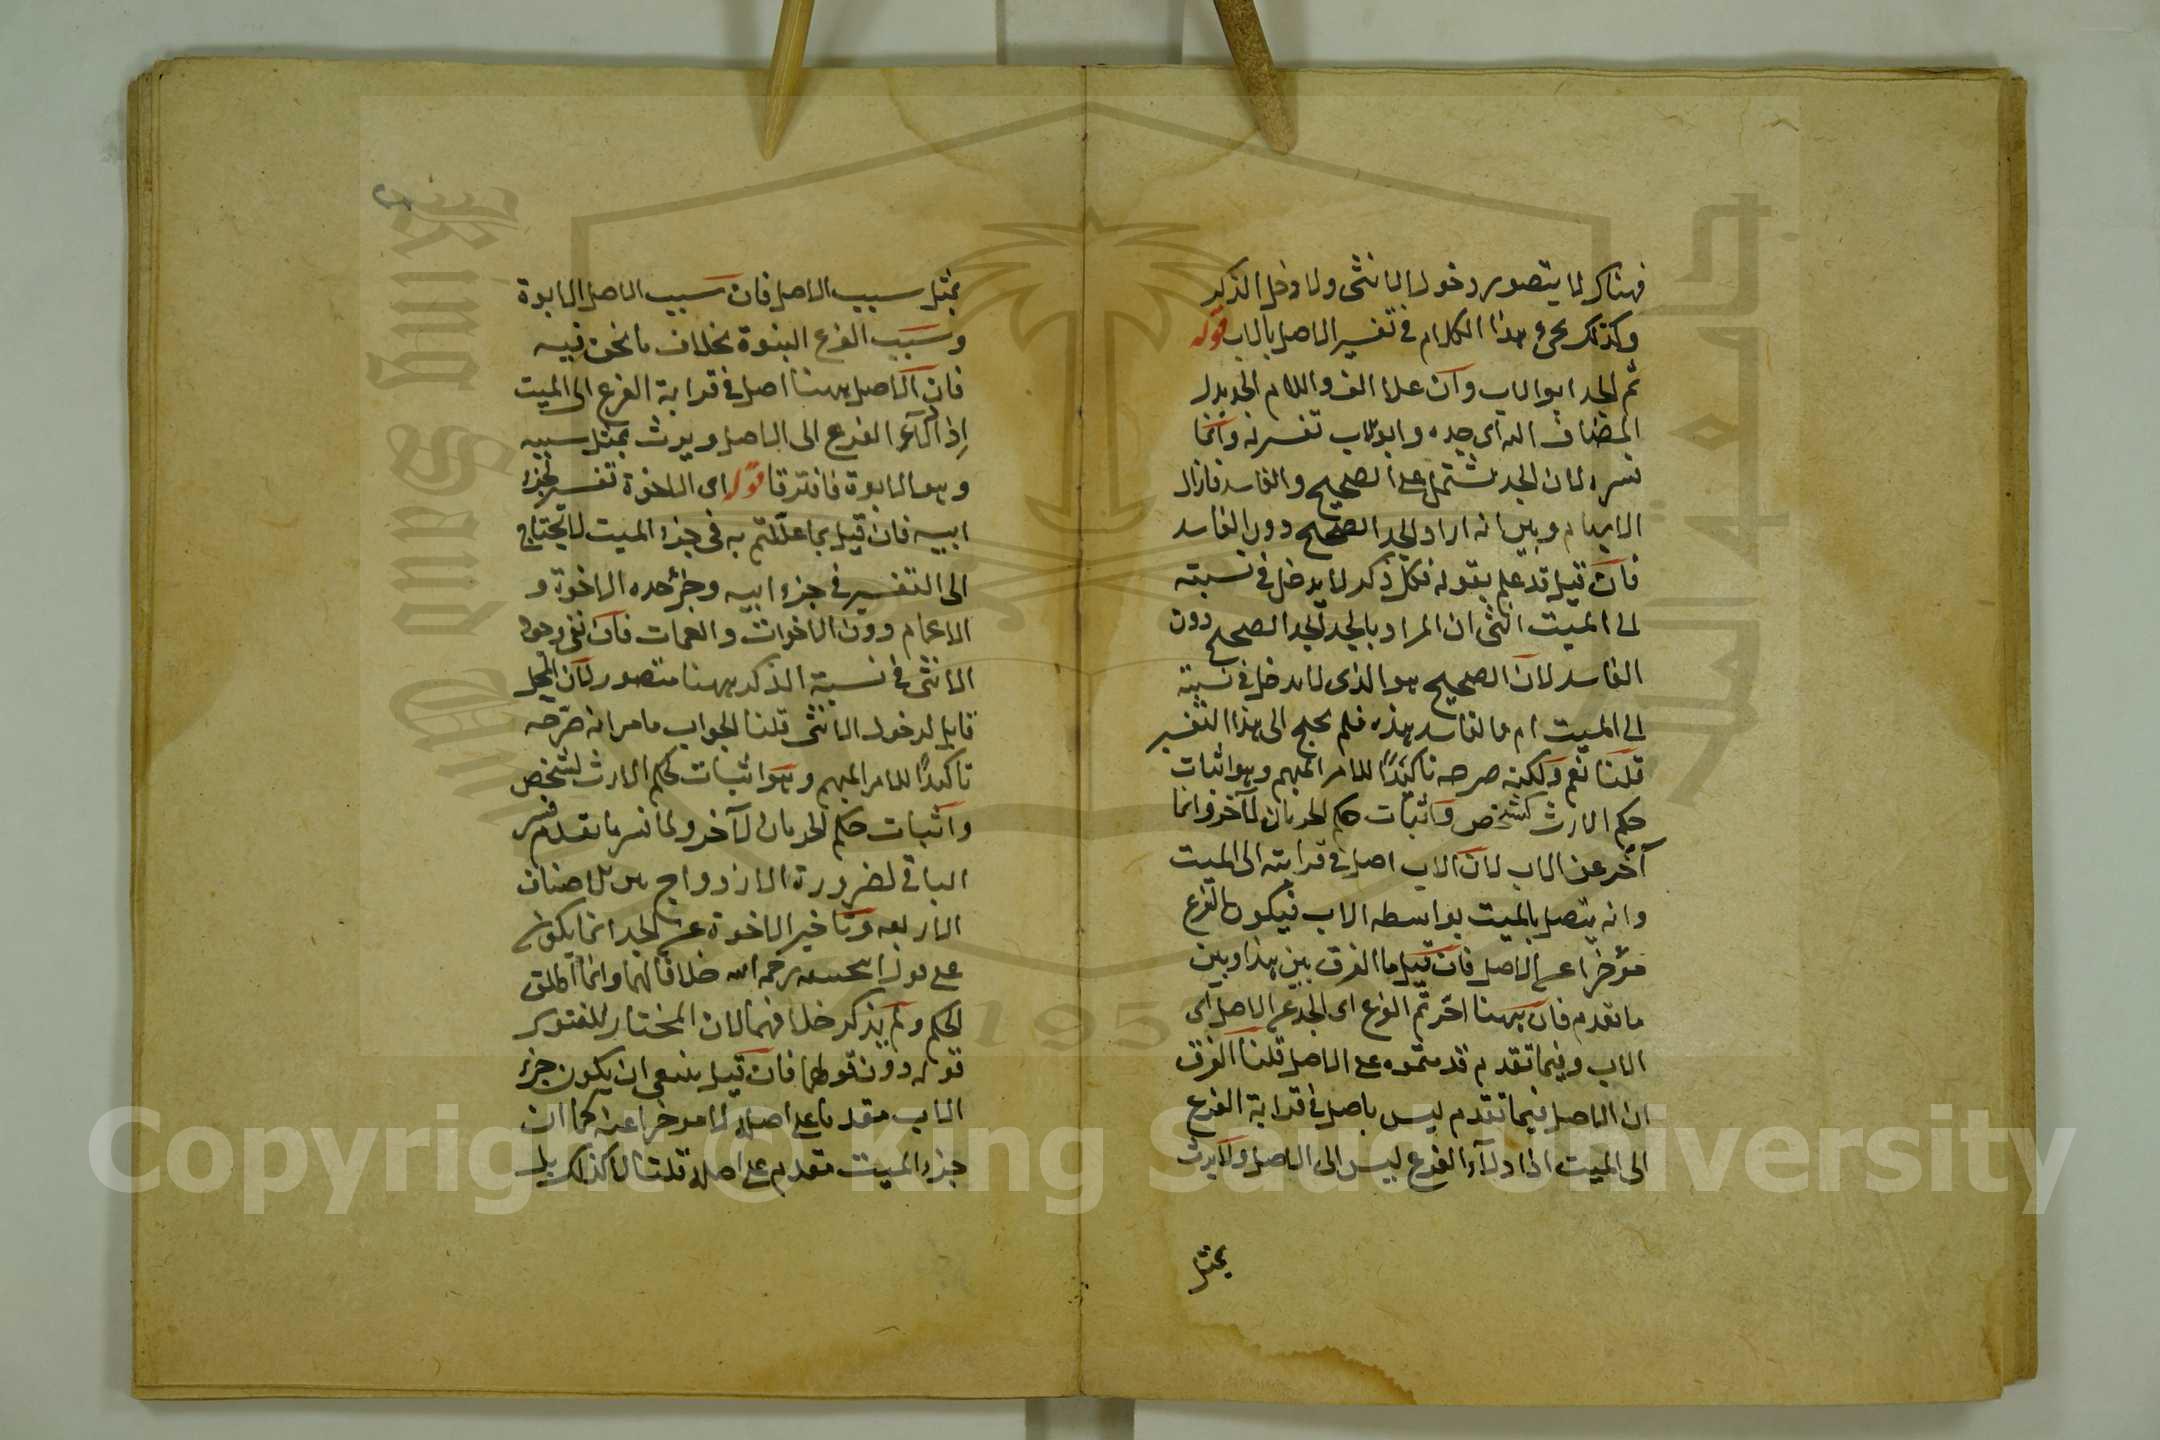 فهناك لا يتصور دخول الانثى ولا دخل الذكر
وكذلك يجرى هذا الكلام في تفسير الاصل بالاب قوله
ثم الجد ابو الاب وان علا الف واللام الجد بدل
المضاف اليه اى جده وابو الاب تفسيره وانما
فسره لان الجد يشتمل على الصحيح والفاسد فازال
الابهام وبين انه اراد الجد الصحيح دون الفاسد
فان قيل قد علم بقوله فكل ذكر لا يدخل في نسبته
الى الميت انثى ان المراد بالجد الجد الصحيح دون
الفاسد لان الصحيح هو الذى لا يدخل في نسبته
الى الميت ام والفاسد هذه فلم يحتج الى هذا التفسير
قلنا نعم ولكنه صرحه تاكيدًا للامر المبهم وهو اثبات
حكم الارث لشخص واثبات حكم الحرمان لآخر وانما
آخر عن الاب لان الاب اصل في قرابته الى الميت
وانه يتصل بالميت بواسطه الاب فيكون الفرع
مؤخرا على الاصل فان قيل ما الفرق بين هذا وبين
ما تقدم فان ههنا اخرتم الفرع اى الجد على الاصل اى
الاب وفيما تقدم قدمتموه على الاصل قلنا الفرق
ان الاصل فيما تقدم ليس باصل في قرابة الفرع
الى الميت اذا دلآء الفرع ليس الى الاصل ولا يرث
بمثل
بمثل سبب الاصل فان سبب الاصل الابوة
وسبب الفرع البنوة بخلاف ما نحن فيه
فان الاصل ههنا اصل في قرابة الفرع الى الميت
اذ ادلآء الفرع الى الاصل ويرث بمثل سببه
وهو الابوة فافترقا قوله اى الاخوة تفسير لجزء
ابيه فان قيل بما عللتم به في جزء الميت لا يحتاج
الى التفسير في جزء ابيه وجزء جده الاخوة و
الاعمام دون الاخوات والعمات فان نفى دخول
الانثى في نسبة الذكر ههنا متصور لان المحل
قابل لدخول الانثى قلنا الجواب ما مر انه صرحه
تاكيدًا للامر المبهم وهو اثبات حكم الارث لشخص
واثبات حكم الحرمان لآخر ولما فسر ما تقدم فسر
الباقي لضرورة الازدواج هو بل اصناف
الاربعه وتاخير الاخوة عن الجد انما يكون
على قول ابى حنيفه رحمه الله خلافا لهما وانما اطلق
الحكم ولم يذكر خلافهما لان المختار للفتوى
قوله دون قولهما فان قيل ينبغى ان يكون جزء
الاب مقدما على اصله لا موخرا عنه كما ان
جزء الميت مقدم على اصله قلنا لا كذلك بل
جامعة الملك سعود
King Saud University
1957
Copyright © King Saud University